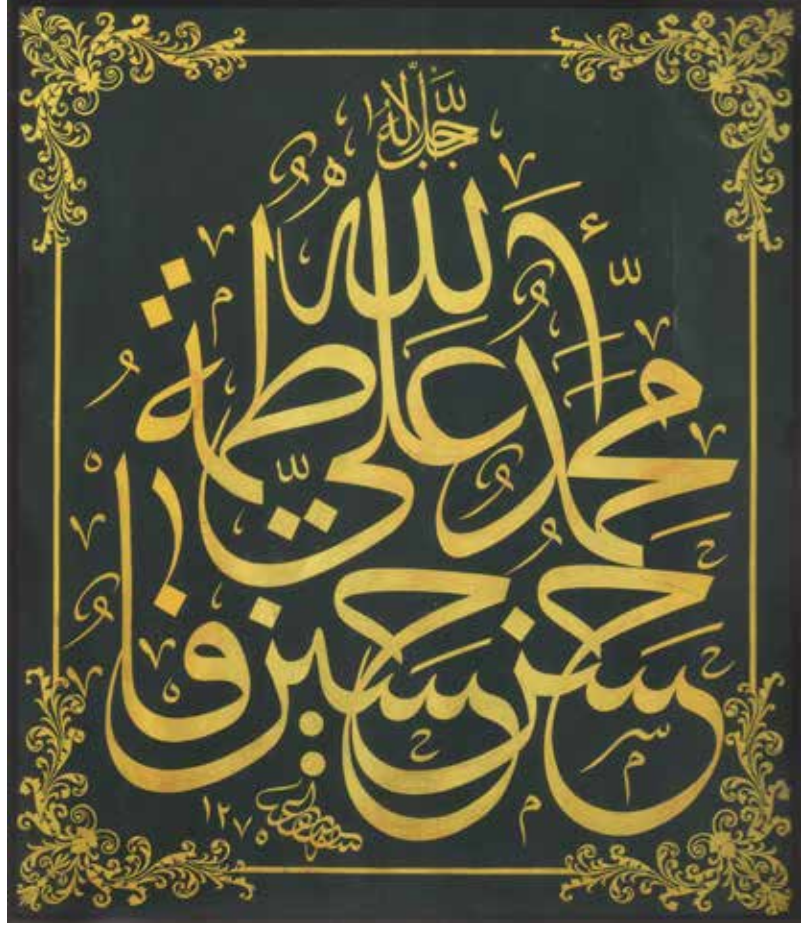 جل جلاله
الله
محمد علي فاطمة
حسن حسين
١٢٧٥